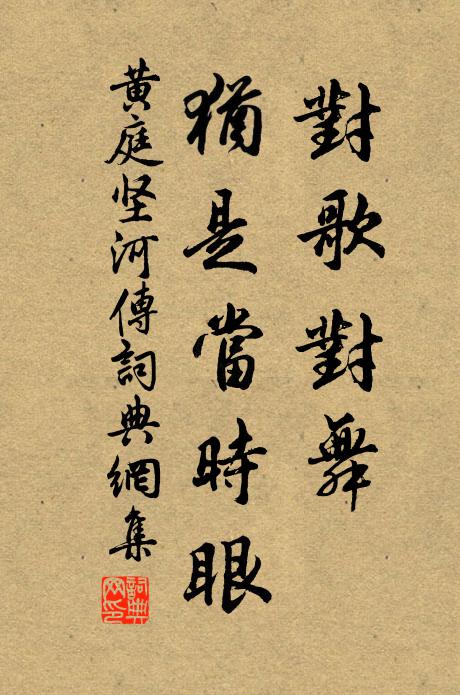 對歌對舞
猶是當時眼
黄庭坚河傳詞典網集
詞典网印